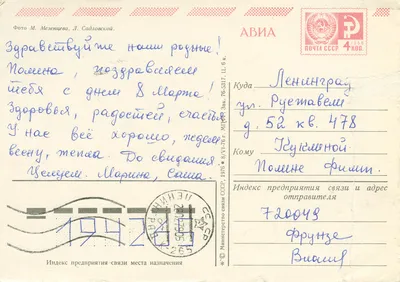 Фото М. Мезенцева, Л. Садловской
АВИА
ПОЧТА СССР
4 коп
Здравствуйте наши родные!
Полина, поздравляем
тебя с днем 8 Марта!
Здоровья, радостей, счастья
У нас всё хорошо, ждем
весну, тепла. До свидания
Целуем. Марина, Саша.
Куда Ленинград
ул. Руставели
д. 52 кв. 478
Кому
Полине Филип.
Индекс предприятия связи и адрес
отправителя
720049
Фрунзе
© Министерство связи СССР
194281
Индекс предприятия связи места назначения
ЛЕНИНГРАД
СССР